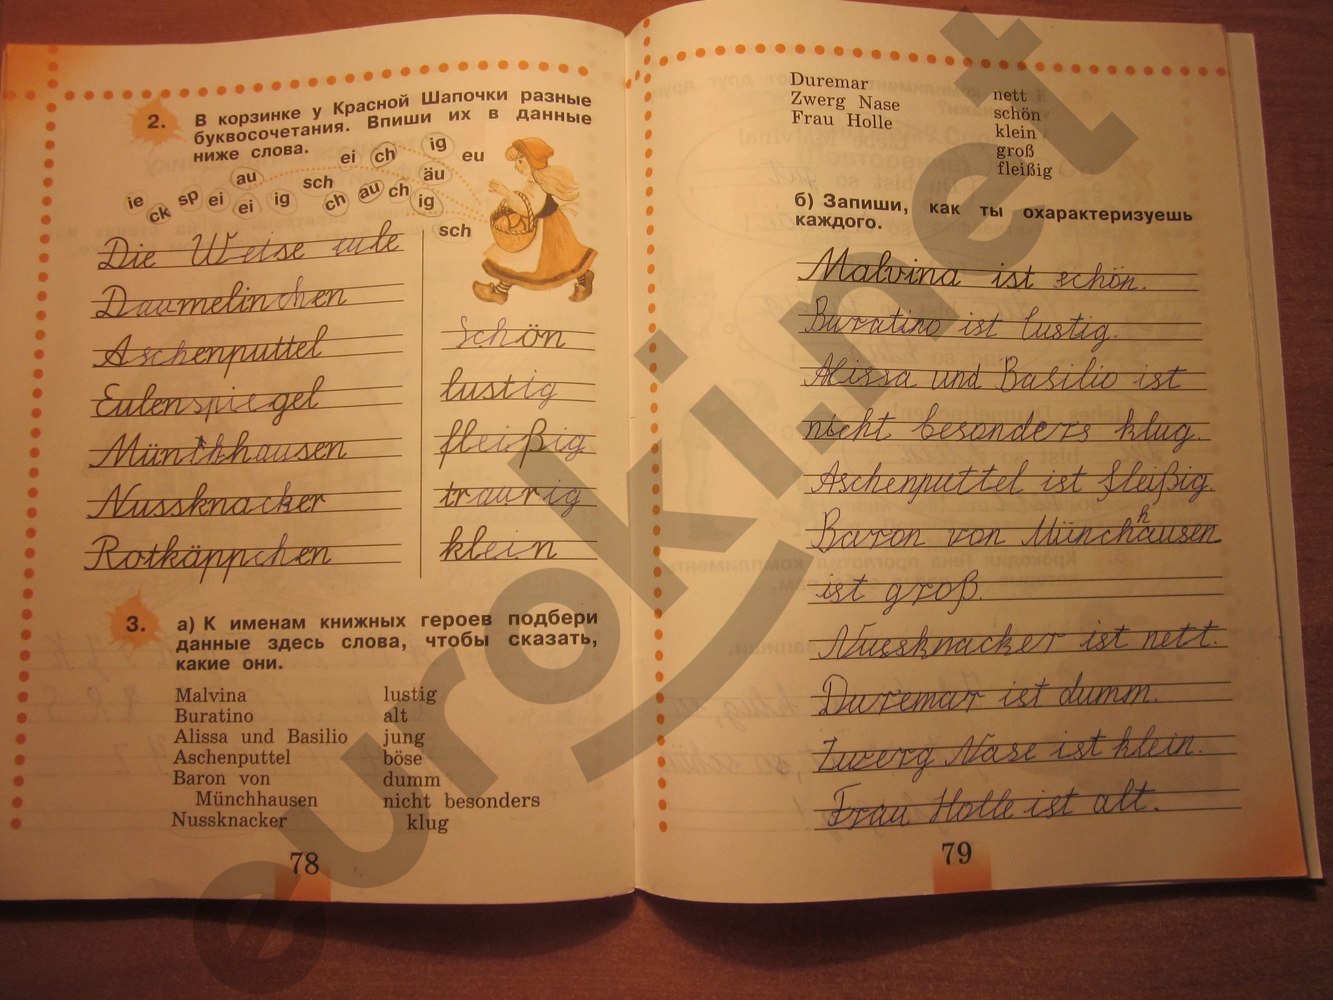 2. В корзинке у Красной Шапочки разные
буквосочетания. Впиши их в данные
ниже слова.
ei ch ig eu
ie ck sp ei au ei ig sch ch au ch äu ig
sch
Die Weise eule
Daumelinchen
Aschenputtel
Eulenspiegel
Münchhausen
Nussknacker
Rotkäppchen
schön
lustig
fleißig
traurig
klein
3. а) К именам книжных героев подбери
данные здесь слова, чтобы сказать,
какие они.
Malvina lustig
Buratino alt
Alissa und Basilio jung
Aschenputtel böse
Baron von dumm
Münchhausen nicht besonders
Nussknacker klug
78
Duremar nett
Zwerg Nase schön
Frau Holle klein
groß
fleißig
б) Запиши, как ты охарактеризуешь
каждого.
Malvina ist schön.
Buratino ist lustig.
Alissa und Basilio ist
nicht besonders klug.
Aschenputtel ist fleißig.
Baron von Münchhausen
ist groß.
Nussknacker ist nett.
Duremar ist dumm.
Zwerg Nase ist klein.
Frau Holle ist alt.
79
euroki.net